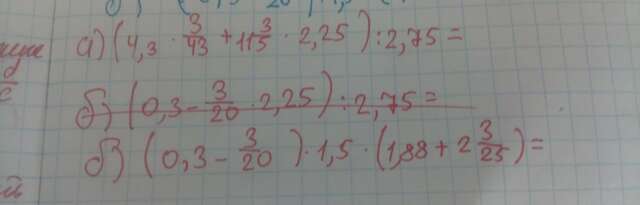 а) (4,3 · 3/43 + 11 3/5 · 2,25) : 2,75 =
б) (0,3 - 3/20 · 2,25) : 2,75 =
б) (0,3 - 3/20) · 1,5 · (1,88 + 2 3/25) =